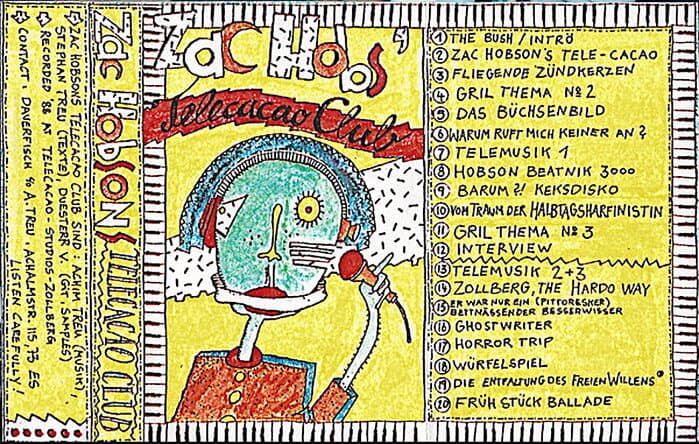 → ZAC HOBSONS TELECACAO CLUB SIND: ACHIM TREU (MUSIK),
STEPHAN TREU (TEXTE), DUESTERR V. (GIT. SAMPLES)
→ RECORDED '88 AT TELECACAO-STUDIOS-ZOLLBERG
→ CONTACT: DAUERFISCH % A. TREU, ACHALMSTR. 115, 73 ES
LISTEN CAREFULLY!
Zac Hobsons TELECACAO CLUB
Zac Hobs'
Telecacao Club
① THE BUSH / INTRÖ
② ZAC HOBSON'S TELE-CACAO
③ FLIEGENDE ZÜNDKERZEN
④ GRIL THEMA № 2
⑤ DAS BÜCHSENBILD
⑥ WARUM RUFT MICH KEINER AN?
⑦ TELEMUSIK 1
⑧ HOBSON BEATNIK 3000
⑨ BARUM?! KEKSDISKO
⑩ VOM TRAUM DER HALBTAGSHARFINISTIN
⑪ GRIL THEMA № 3
⑫ INTERVIEW
⑬ TELEMUSIK 2+3
⑭ ZOLLBERG, THE HARDO WAY
⑮ ER WAR NUR EIN (PITTORESKER)
BETTNÄSSENDER BESSERWISSER
⑯ GHOSTWRITER
⑰ HORROR TRIP
⑱ WÜRFELSPIEL
⑲ DIE ENTFALTUNG DES FREIEN WILLENS
⑳ FRÜHSTÜCK BALLADE